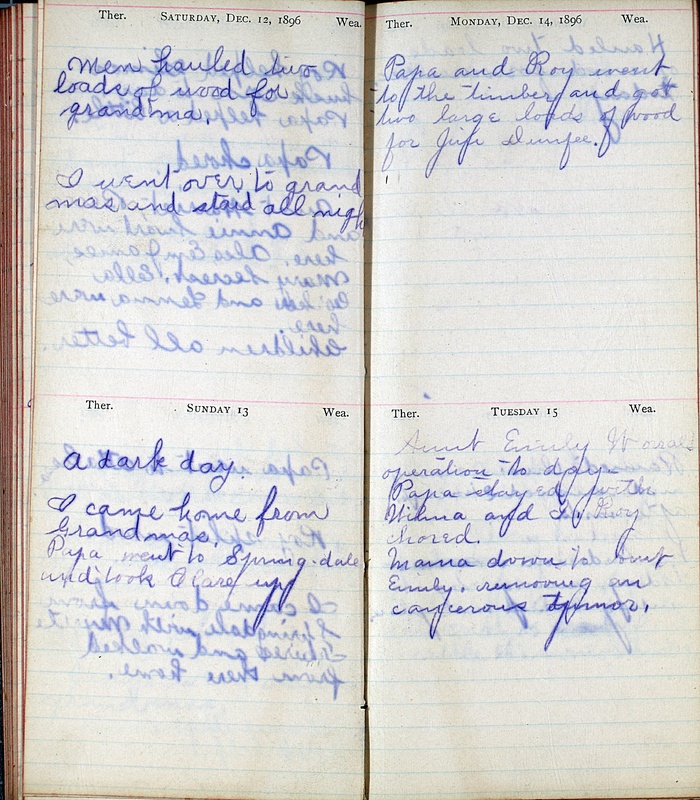 Ther. SATURDAY, DEC. 12, 1896 Wea.
Men hauled two
loads of wood for
grandma.
I went over to grand
mas and staid all nigh
Ther. SUNDAY 13 Wea.
A dark day.
I came home from
Grandmas.
Papa went to Spring-dale
and took Clare up
Ther. MONDAY, DEC. 14, 1896 Wea.
Papa and Roy went
to the timber and got
two large loads of wood
for Dunfee.
Ther. TUESDAY 15 Wea.
Aunt Emily
operation to day.
Papa stayed with
Wilma and I. Roy
chored.
Mama down to aunt
Emily. removing an
cancerous tumor.